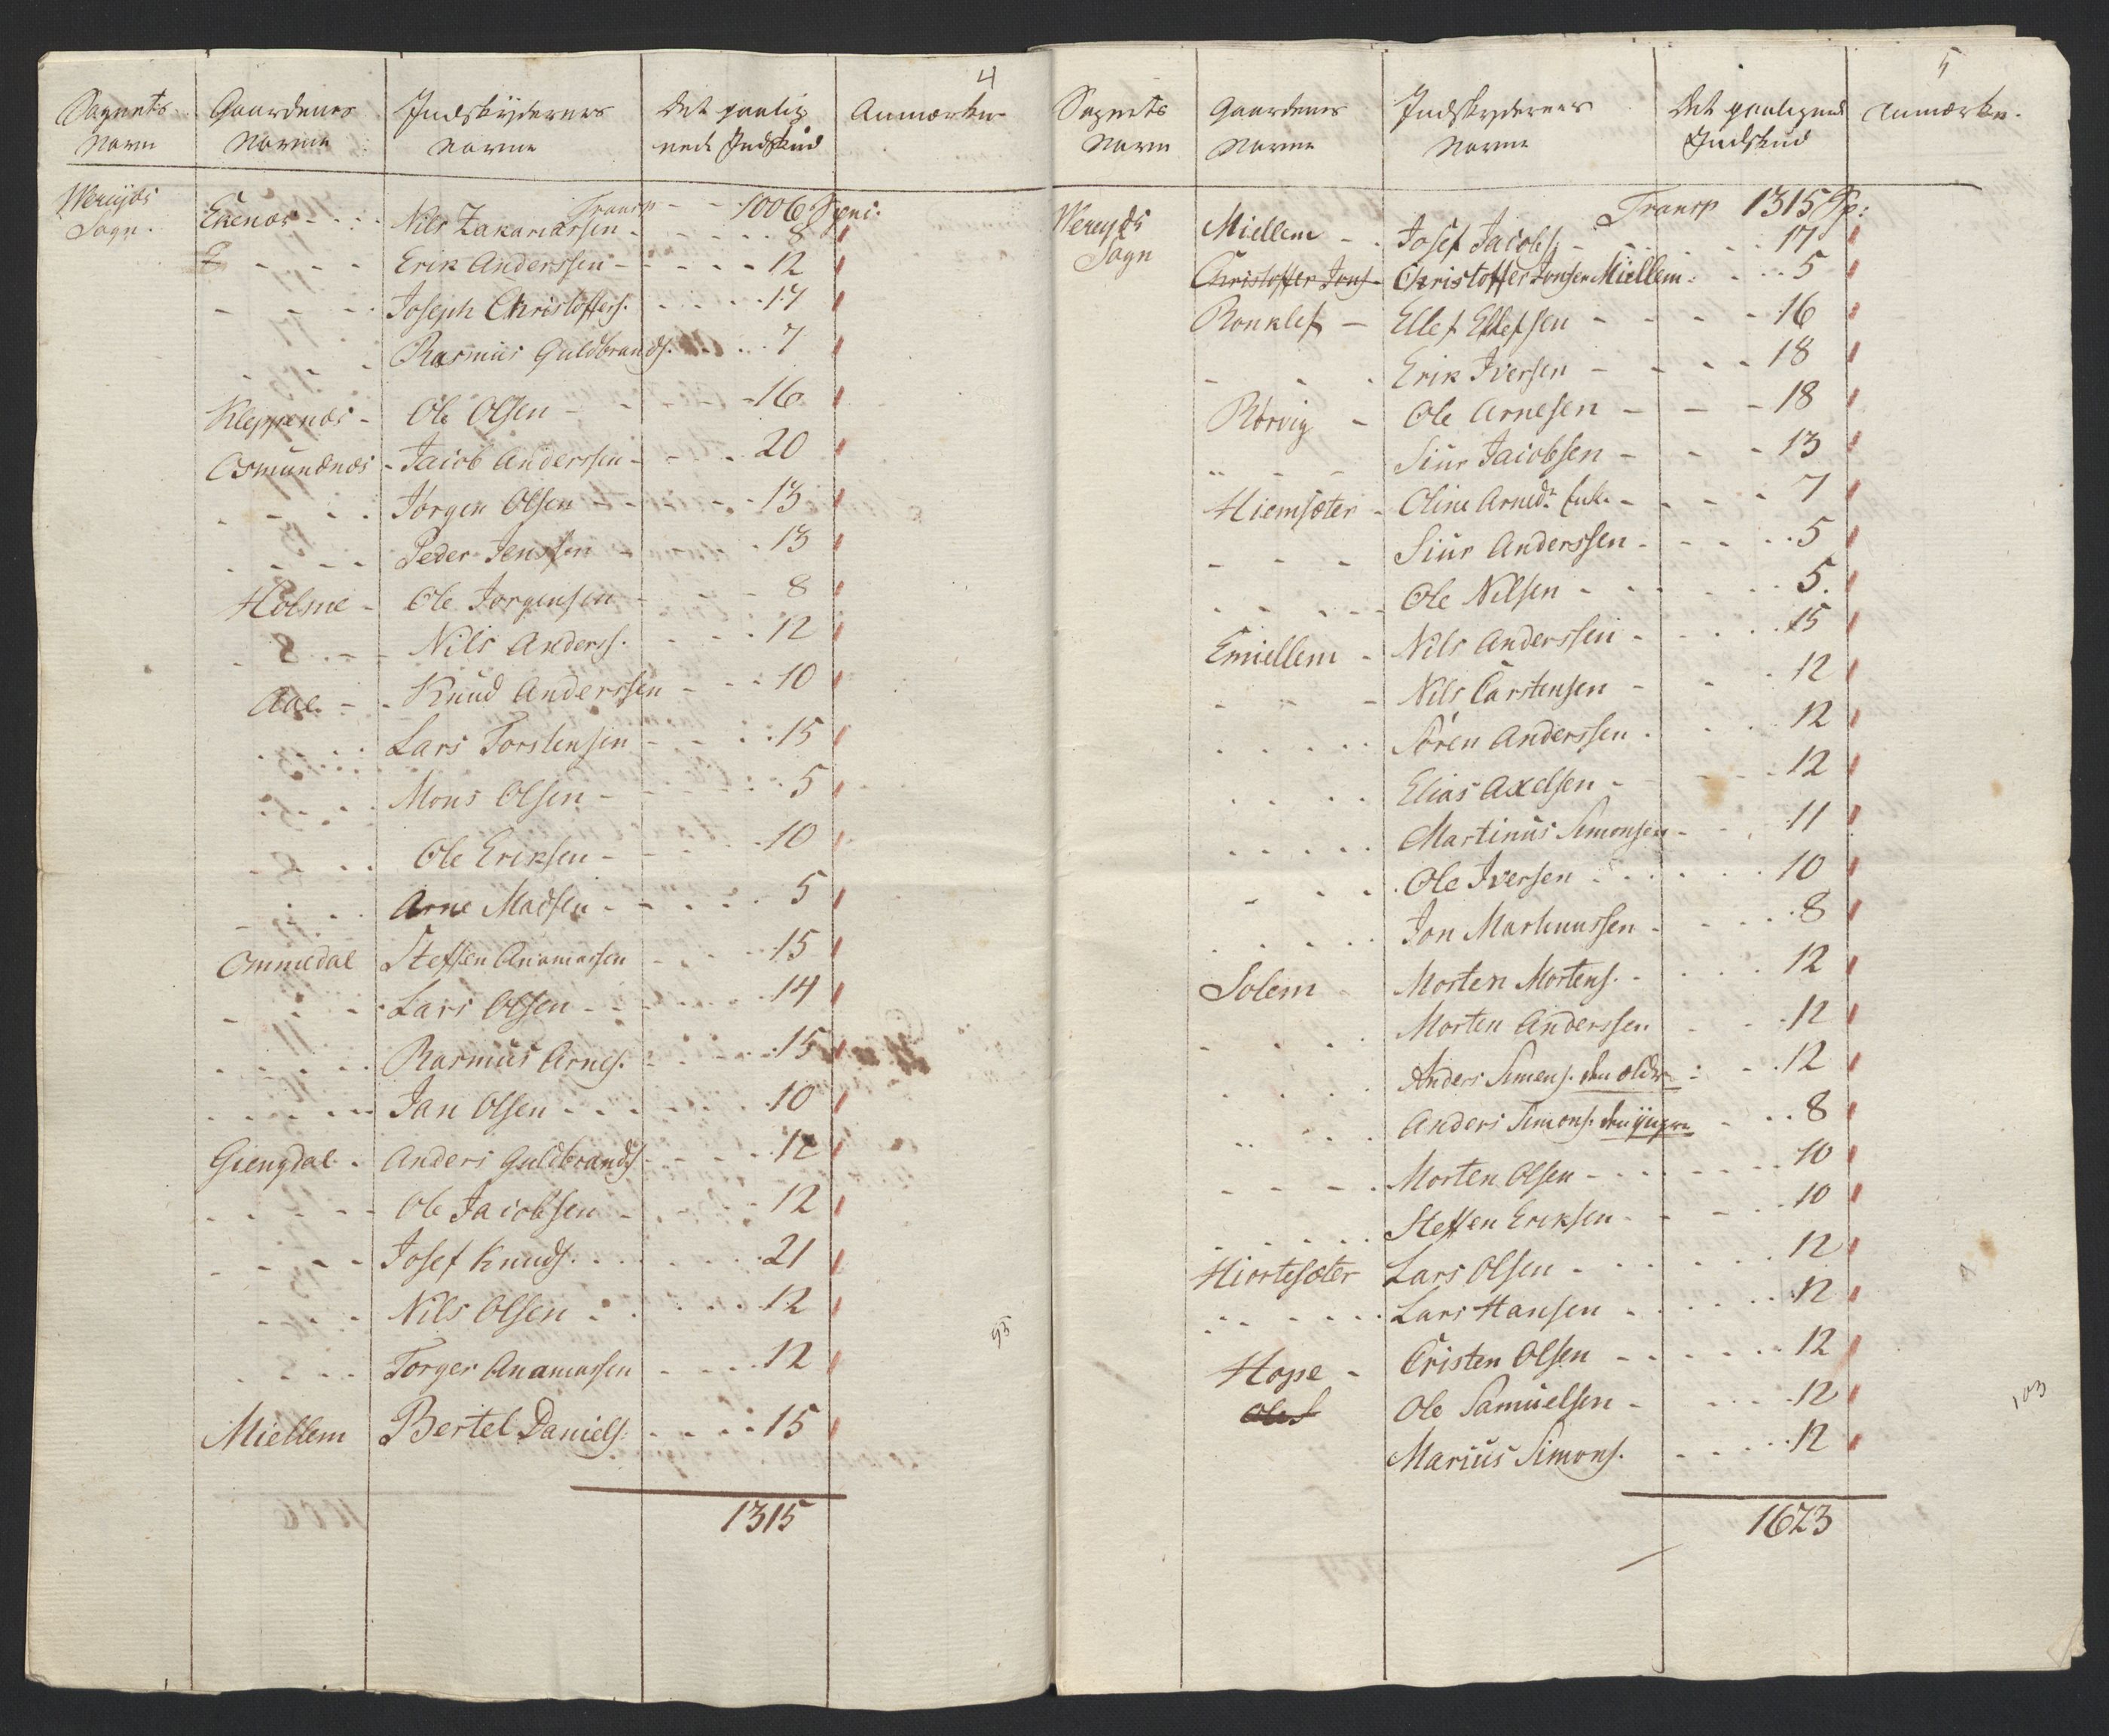 4
Sognets Gaardenes Indskyderens Det paalig Anmærkn
Navn Navne Navne nede Indskud
Wereids Transp - - 1006 Speci.
Sogn. Ekenæs - Nils Zakariassen - 8
Erik Anderssen - 12
Joseph Christoffers. 17
Rasmus Guldbrands. 7
Kleppenæs - Ole Olsen - 16
Osmundnæs - Jacob Anderssen - 20
Jørgen Olsen - 13
Peder Jenssen - 13
Holme - Ole Jørgensen - 8
Nils Anderss. 12
Aae - Knud Anderssen - 10
Lars Torstensen - 15
Mons Olsen - 5
Ole Eriksen - 10
Arne Madsen - 5
Ommedal Steffen Anamassen 15
Lars Olsen - 14
Rasmus Arnes. 15
Jan Olsen - 10
Giengdal - Anders Guldbrands. 12
Ole Jacobsen - 12
Josef Knuds. 21
Nils Olsen - 12
Torger Anamassen 12
Miellem Bertel Daniels. 15
1315
93
5
Sognets Gaardenes Indskyderens Det paaligende Anmærkn.
Navn Navne Navne Indskud
Transp 1315 Sp:
Wereids Miellem - Josef Jacobs. - 17
Sogn Christoffer Jons. Christoffer Jonsen Miellem. 5
Ronklef - Ellef Ellefsen - 16
Erik Iversen - 18
Rørvig - Ole Arnesen - 18
Siur Jacobsen - 13
Hiemsæter - Oline Arnedr. Enke - 7
Siur Anderssen - 5
Ole Nilsen - 5.
Emiellem - Nils Anderssen - 15
Nils Carstensen - 12
Søren Anderssen - 12
Elias Axelsen - 12
Martinus Simonsen - 11
Ole Iversen - 10
Jon Martinussen - 8
Solem - Morten Mortens. - 12
Morten Anderssen 12
Anders Simens. den ældre - 12
Anders Simons. den yngre - 8
Morten Olsen - 10
Steffen Eriksen - 10
Hiortesæter Lars Olsen - 12
Lars Hansen - 12
Hope - Cristen Olsen - 12
Ole S Ole Samuelsen - 12
Marius Simons. 12
1623
103